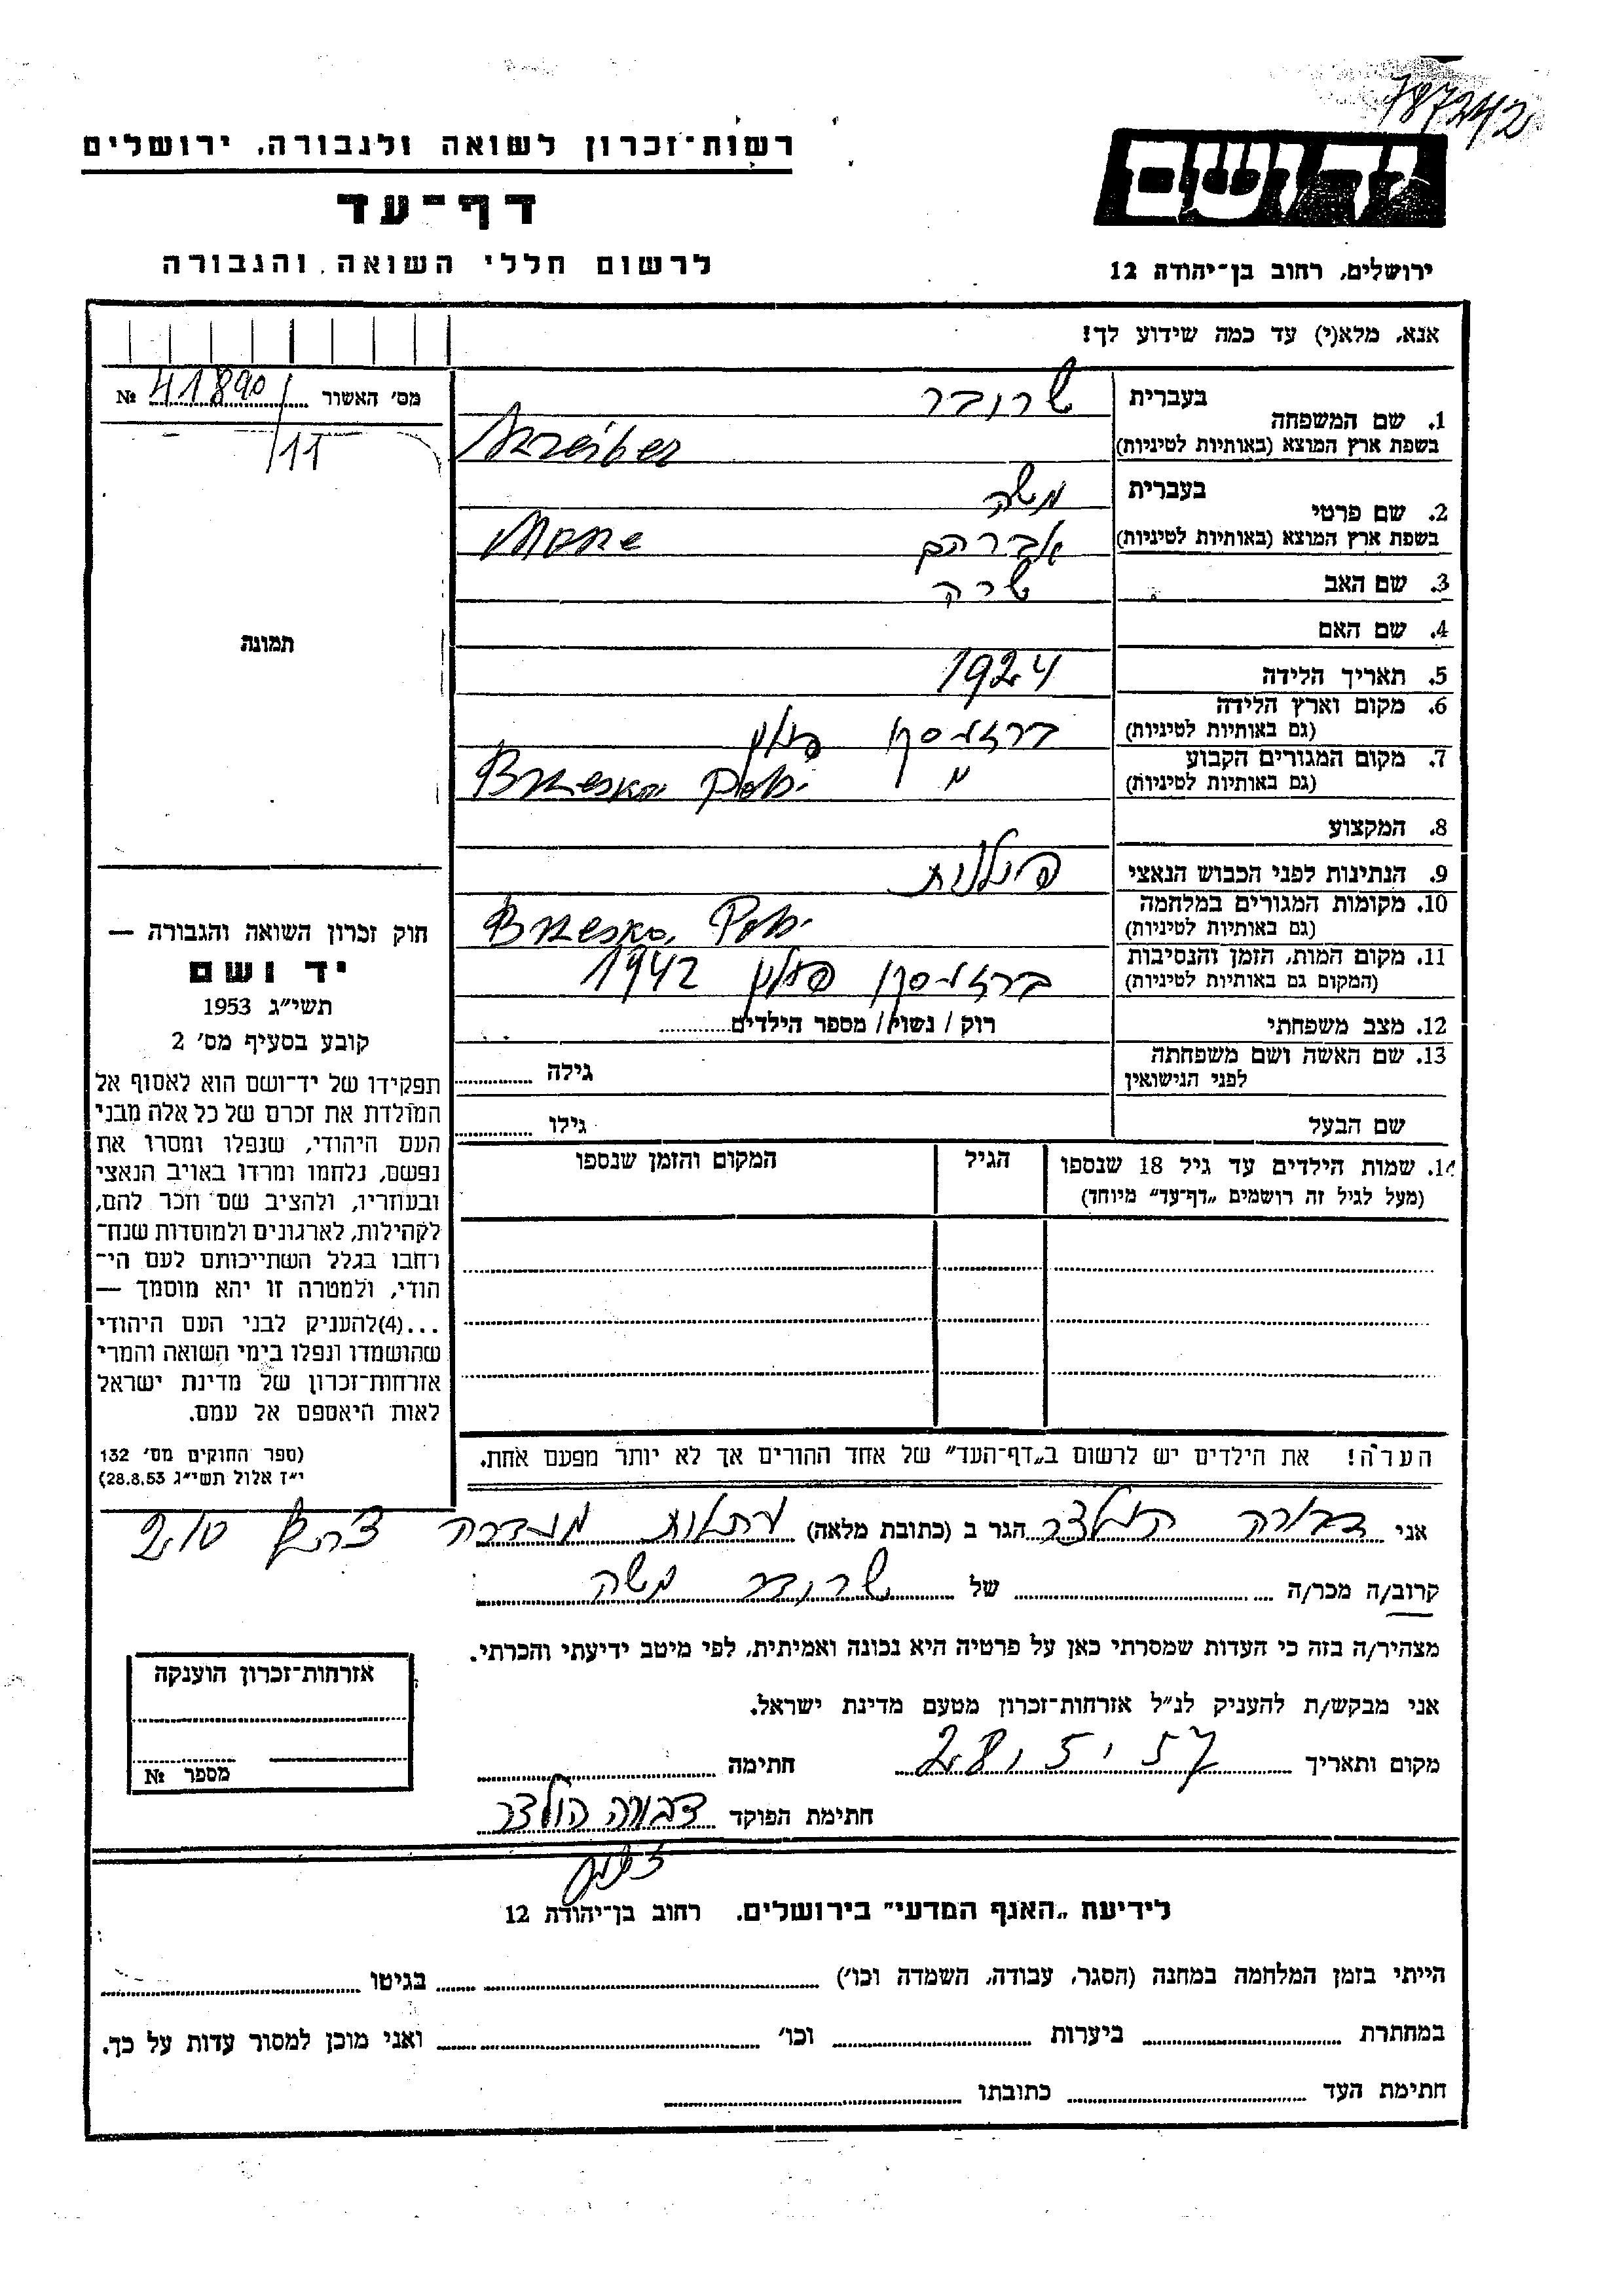 787242
רשות־זכרון לשואה ולגבורה, ירושלים
יד ושם
דף־עד
לרשום חללי השואה והגבורה
ירושלים, רחוב בן־יהודה 12
אנא, מלא(י) עד כמה שידוע לך!
מס׳ האשור № 41890/11
תמונה
1. שם המשפחה בעברית שרובר
בשפת ארץ המוצא (באותיות לטיניות)
2. שם פרטי בעברית משה
בשפת ארץ המוצא (באותיות לטיניות) אברהם
3. שם האב שרה
4. שם האם
5. תאריך הלידה 1924
6. מקום וארץ הלידה פולין
(גם באותיות לטיניות)
7. מקום המגורים הקבוע
(גם באותיות לטיניות)
8. המקצוע
9. הנתינות לפני הכבוש הנאצי פולנית
10. מקומות המגורים במלחמה Brzesko,
(גם באותיות לטיניות)
11. מקום המות, הזמן והנסיבות פולין 1942
(המקום גם באותיות לטיניות)
12. מצב משפחתי רוק / נשוי / מספר הילדים
13. שם האשה ושם משפחתה גילה
לפני הנישואין
שם הבעל גילו
14. שמות הילדים עד גיל 18 שנספו הגיל המקום והזמן שנספו
(מעל לגיל זה רושמים „דף־עד” מיוחד)
הערה! את הילדים יש לרשום ב„דף־העד” של אחד ההורים אך לא יותר מפעם אחת.
חוק זכרון השואה והגבורה —
יד ושם
תשי״ג 1953
קובע בסעיף מס׳ 2
תפקידו של יד־ושם הוא לאסוף אל
המולדת את זכרם של כל אלה מבני
העם היהודי, שנפלו ומסרו את
נפשם, נלחמו ומרדו באויב הנאצי
ובעוזריו, ולהציב שם וזכר להם,
לקהילות, לארגונים ולמוסדות שנח־
רחבו בגלל השתייכותם לעם הי־
הודי, ולמטרה זו יהא מוסמך —
...(4)להעניק לבני העם היהודי
שהושמדו ונפלו בימי השואה והמרי
אזרחות־זכרון של מדינת ישראל
לאות היאספם אל עמם.
(ספר החוקים מס׳ 132
י״ז אלול תשי״ג 28.8.53)
אני דבורה הולצר הגר ב (כתובת מלאה)
קרוב/ה מכר/ה של שרובר משה
מצהיר/ה בזה כי העדות שמסרתי כאן על פרטיה היא נכונה ואמיתית, לפי מיטב ידיעתי והכרתי.
אני מבקש/ת להעניק לנ״ל אזרחות־זכרון מטעם מדינת ישראל.
מקום ותאריך 28.5.57 חתימה
חתימת הפוקד דבורה הולצר
אזרחות־זכרון הוענקה
מספר №
לידיעת „האגף המדעי” בירושלים. רחוב בן־יהודה 12
הייתי בזמן המלחמה במחנה (הסגר, עבודה, השמדה וכו׳) בגיטו
במחתרת ביערות וכו׳ ואני מוכן למסור עדות על כך.
חתימת העד כתובתו